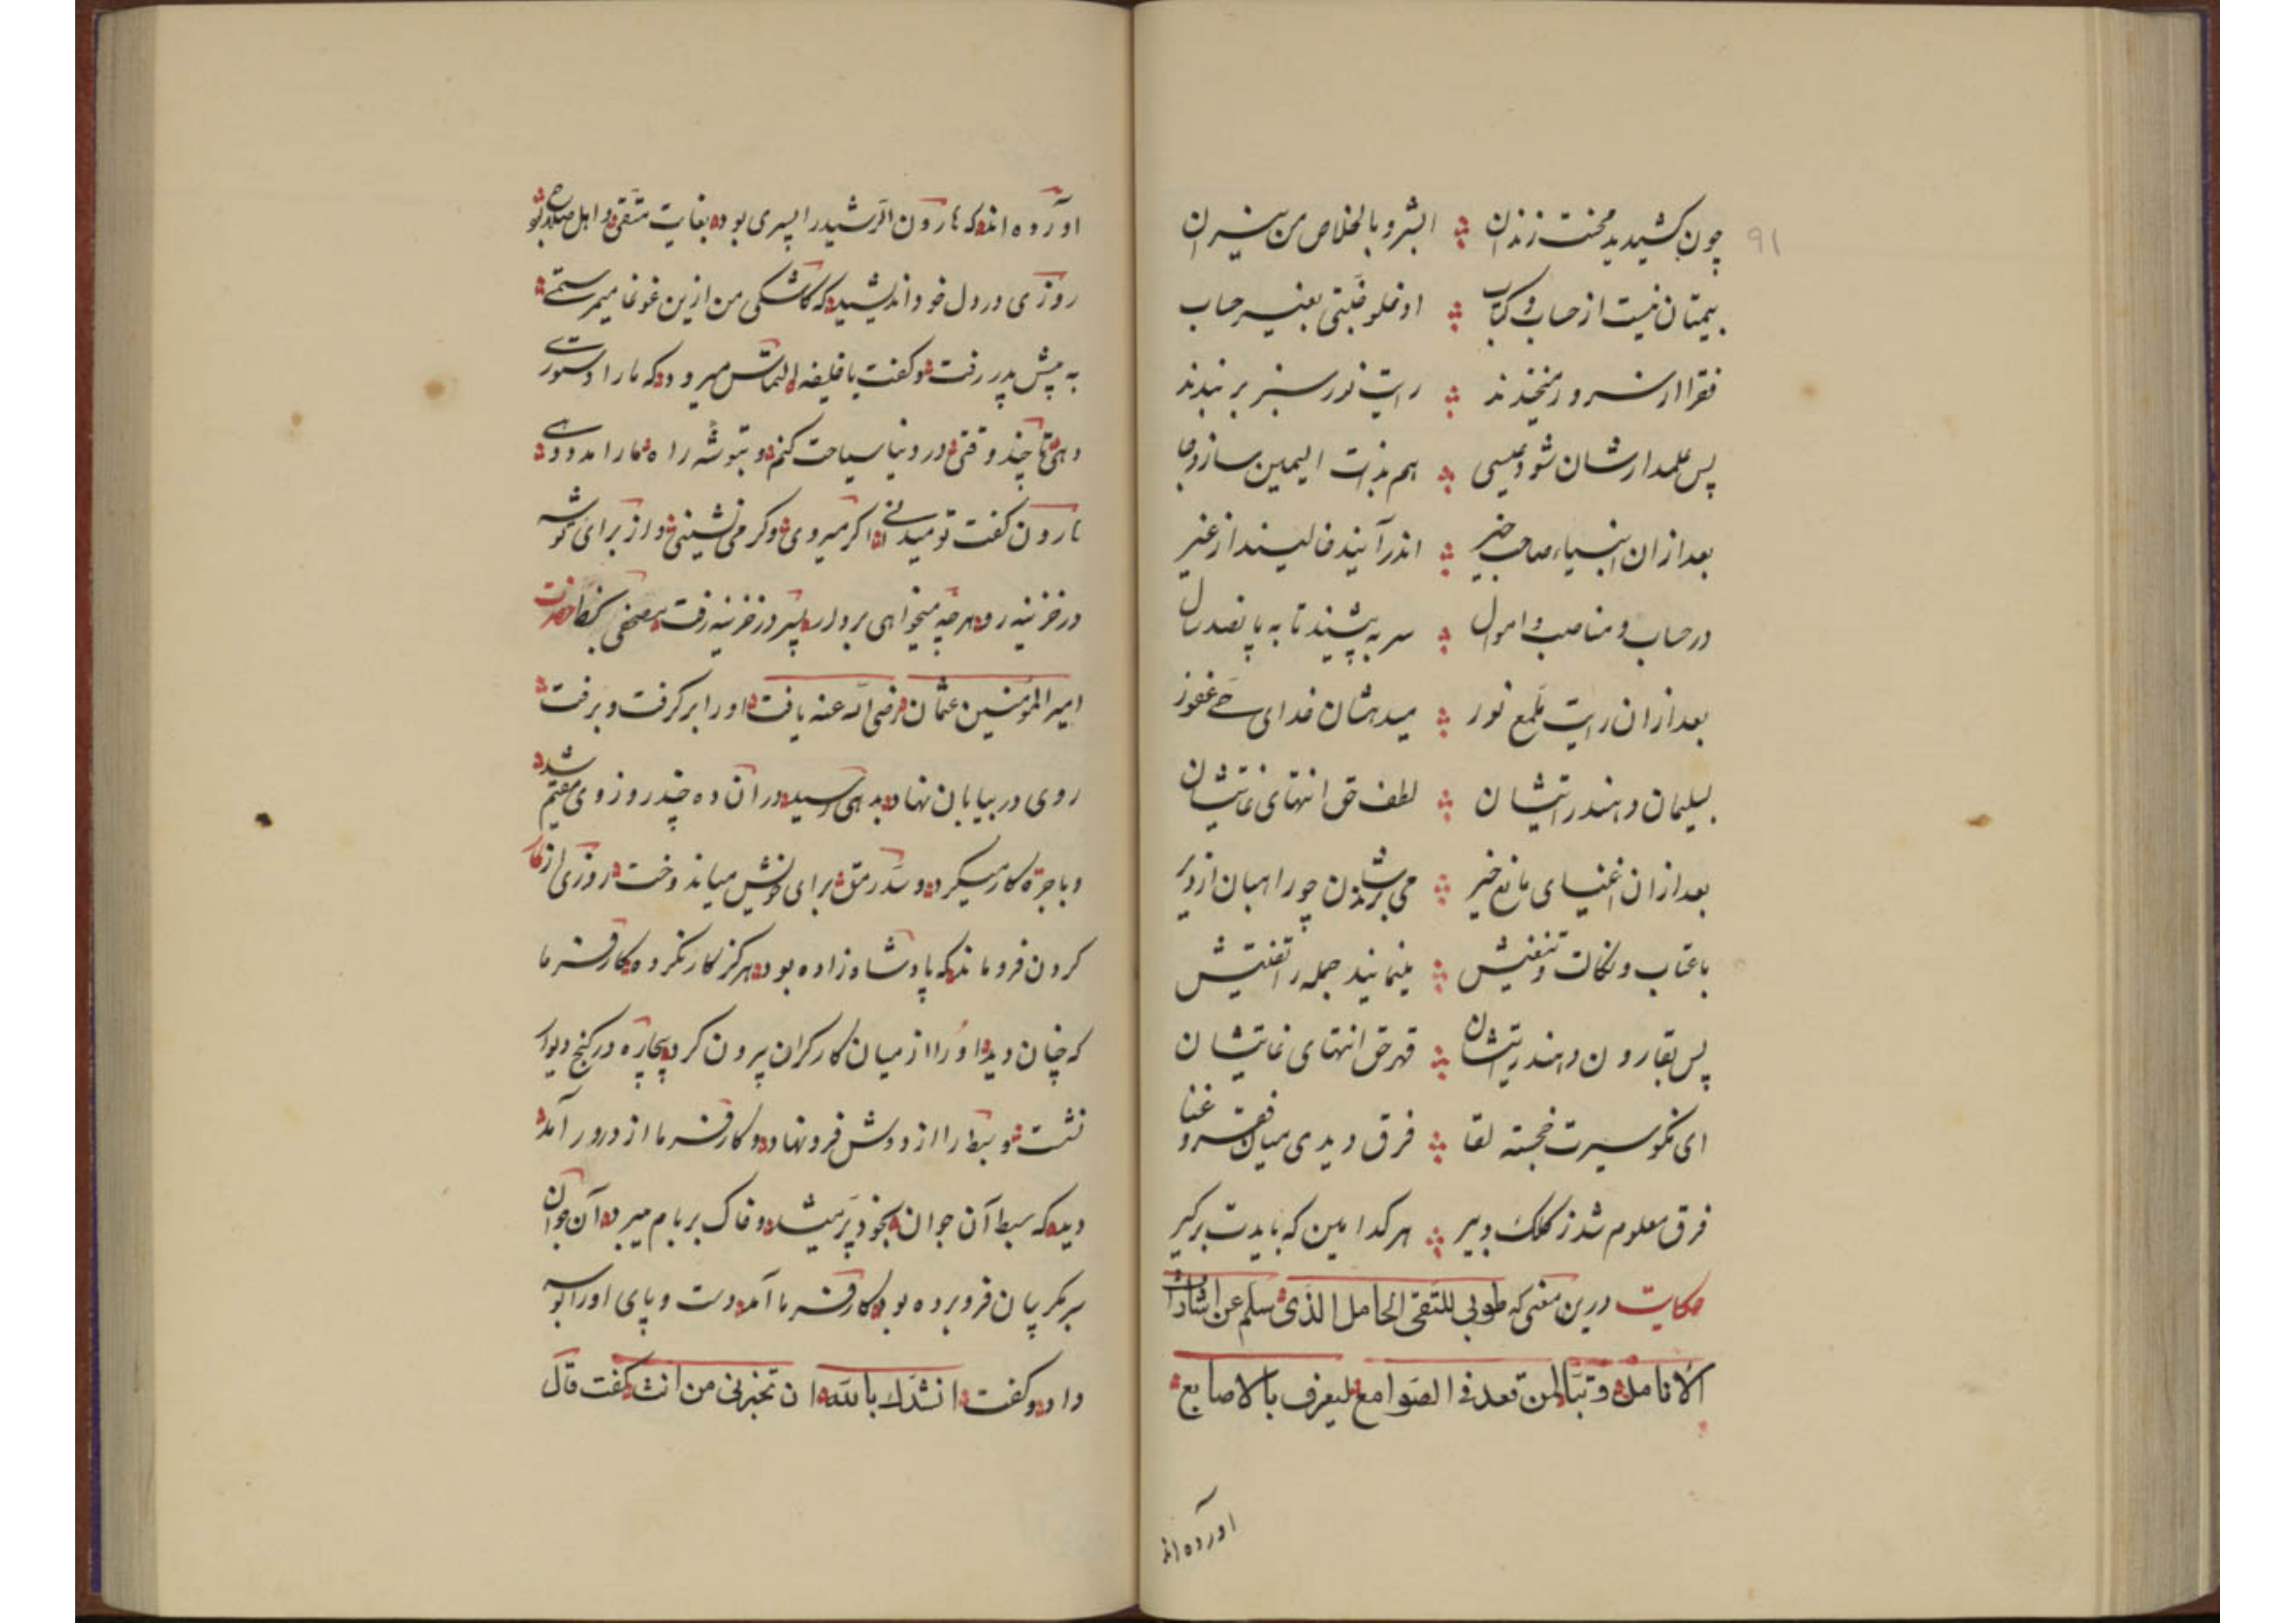 ۹۱
چون کشیدید محنت زندان ابشروا بالخلاص من نیران
بیمتان نیست از حساب و کتاب ادخلو جنتی بغیر حساب
فقرا از سرور میخندند رایت نور سبز بر بندند
پس علمدارشان شود عیسی هم بذات الیمین سازد جا
بعد ازان انبیاء صاحب خیر اندر آیند خالیند از غیر
در حساب و مناصب و اموال سر به پیشند تا به پانصد سال
بعد ازان رایت ملمع نور میدهدشان خدای حی غفور
بسلیمان دهند رایتشان لطف حق انتهای غایتشان
بعد ازان اغنیای مانع خیر می برندشان چو راهبان از دیر
با عتاب و نکات و تنفیش مینمایند جمله را تفتیش
پس بقارون دهند رایتشان قهر حق انتهای غایتشان
ای نکو سیرت خجسته لقا فرق دیدی میان فقر و غنا
فرق معلوم شد ز کلک دبیر هر کدامین که بایدت برگیر
حکایت درین معنی که طوبی للتقی الخامل الذی سلم عن اشارات
الانامل و تبّا لمن قعد فی الصوامع لیعرف بالاصابع
اورده اند
اورده اند که هارون الرشید را پسری بود بغایت متقی و اهل صلاح بود
روزی در دل خود اندیشید که کاشکی من ازین غوغا میرستمی
به پیش پدر رفت و کفت یا خلیفه التماس میرود که ما را دستوری
دهی تا چند وقتی در دنیا سیاحت کنم و بتوشه راه ما را مدد دهی
هارون کفت تو میدانی اکر میروی وکر می نشینی و از برای توشه
در خزینه رو هر چه میخواهی بردار پسر در خزینه رفت مصحفی بخط حضرت
امیر المؤمنین عثمان رضی الله عنه یافت او را بر کرفت و برفت
روی در بیابان نهاد بدهی رسید در آن ده چند روزی مقیم شد
و باجرة کار میکرد و سد رمق برای خویش میاندوخت روزی از کار
کردن فرو ماند که پادشاه زاده بود هرکز کار نکرده کارفرما
که چنان دید او را از میان کارکران بیرون کرد بیچاره در کنج دیوار
نشست و بیط را از دوش فرو نهاد و کارفرما از در در آمد
دید که سبط آن جوان بخود پر میشد و خاک بر بام میبرد آن جوان
سر بکریبان فرو برده بود کارفرما آمد دست و پای او را بوسه
داد و کفت انشدک بالله ان تخبرنی من انت کفت قال